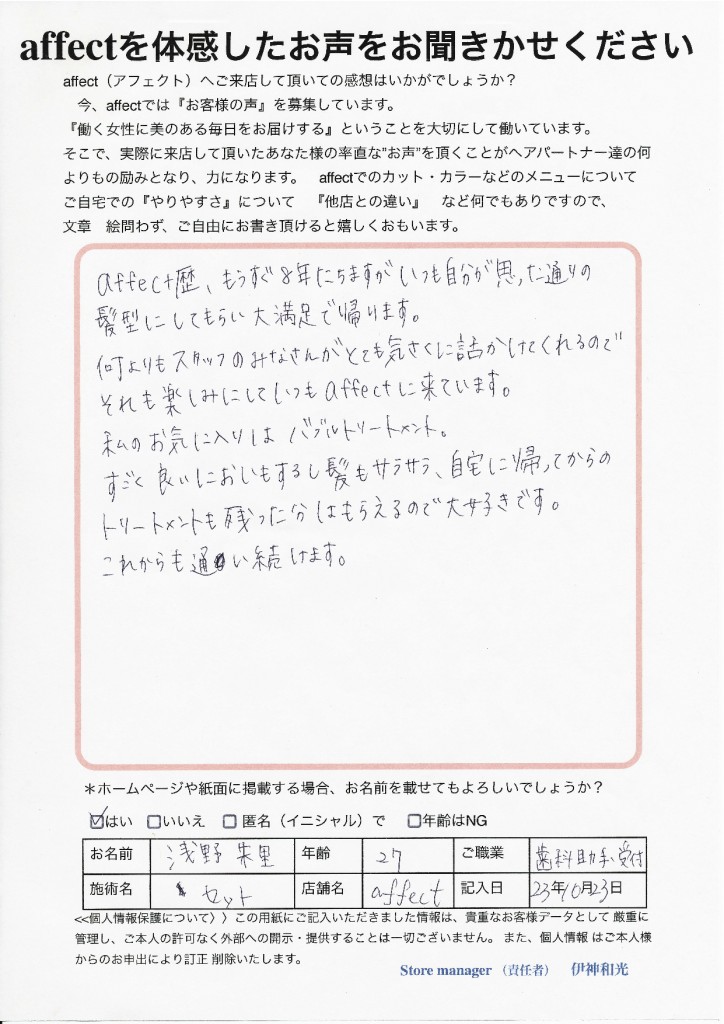 affectを体感したお声をお聞きかせください
affect（アフェクト）へご来店して頂いての感想はいかがでしょうか？
今、affectでは『お客様の声』を募集しています。
『働く女性に美のある毎日をお届けする』ということを大切にして働いています。
そこで、実際に来店して頂いたあなた様の率直な”お声”を頂くことがヘアパートナー達の何
よりもの励みとなり、力になります。 affectでのカット・カラーなどのメニューについて
ご自宅での『やりやすさ』について 『他店との違い』 など何でもありですので、
文章 絵問わず、ご自由にお書き頂けると嬉しくおもいます。
affect歴、もうすぐ8年にたちますがいつも自分が思った通りの
髪型にしてもらい大満足で帰ります。
何よりもスタッフのみなさんがとても気さくに話かけてくれるので
それも楽しみにしていつもaffectに来ています。
私のお気に入りはバブルトリートメント。
すごく良いにおいもするし髪もサラサラ、自宅に帰ってからの
トリートメントも残った分はもらえるので大好きです。
これからも通い続けます。
＊ホームページや紙面に掲載する場合、お名前を載せてもよろしいでしょうか？
☑はい □いいえ □ 匿名（イニシャル）で □年齢はNG
お名前 浅野 朱里 年齢 27 ご職業 歯科助手、受付
施術名 セット 店舗名 affect 記入日 23年10月23日
<<個人情報保護について〉〉この用紙にご記入いただきました情報は、貴重なお客様データとして 厳重に
管理し、ご本人の許可なく外部への開示・提供することは一切ございません。また、個人情報 はご本人様
からのお申出により訂正 削除いたします。
Store manager （責任者） 伊神和光